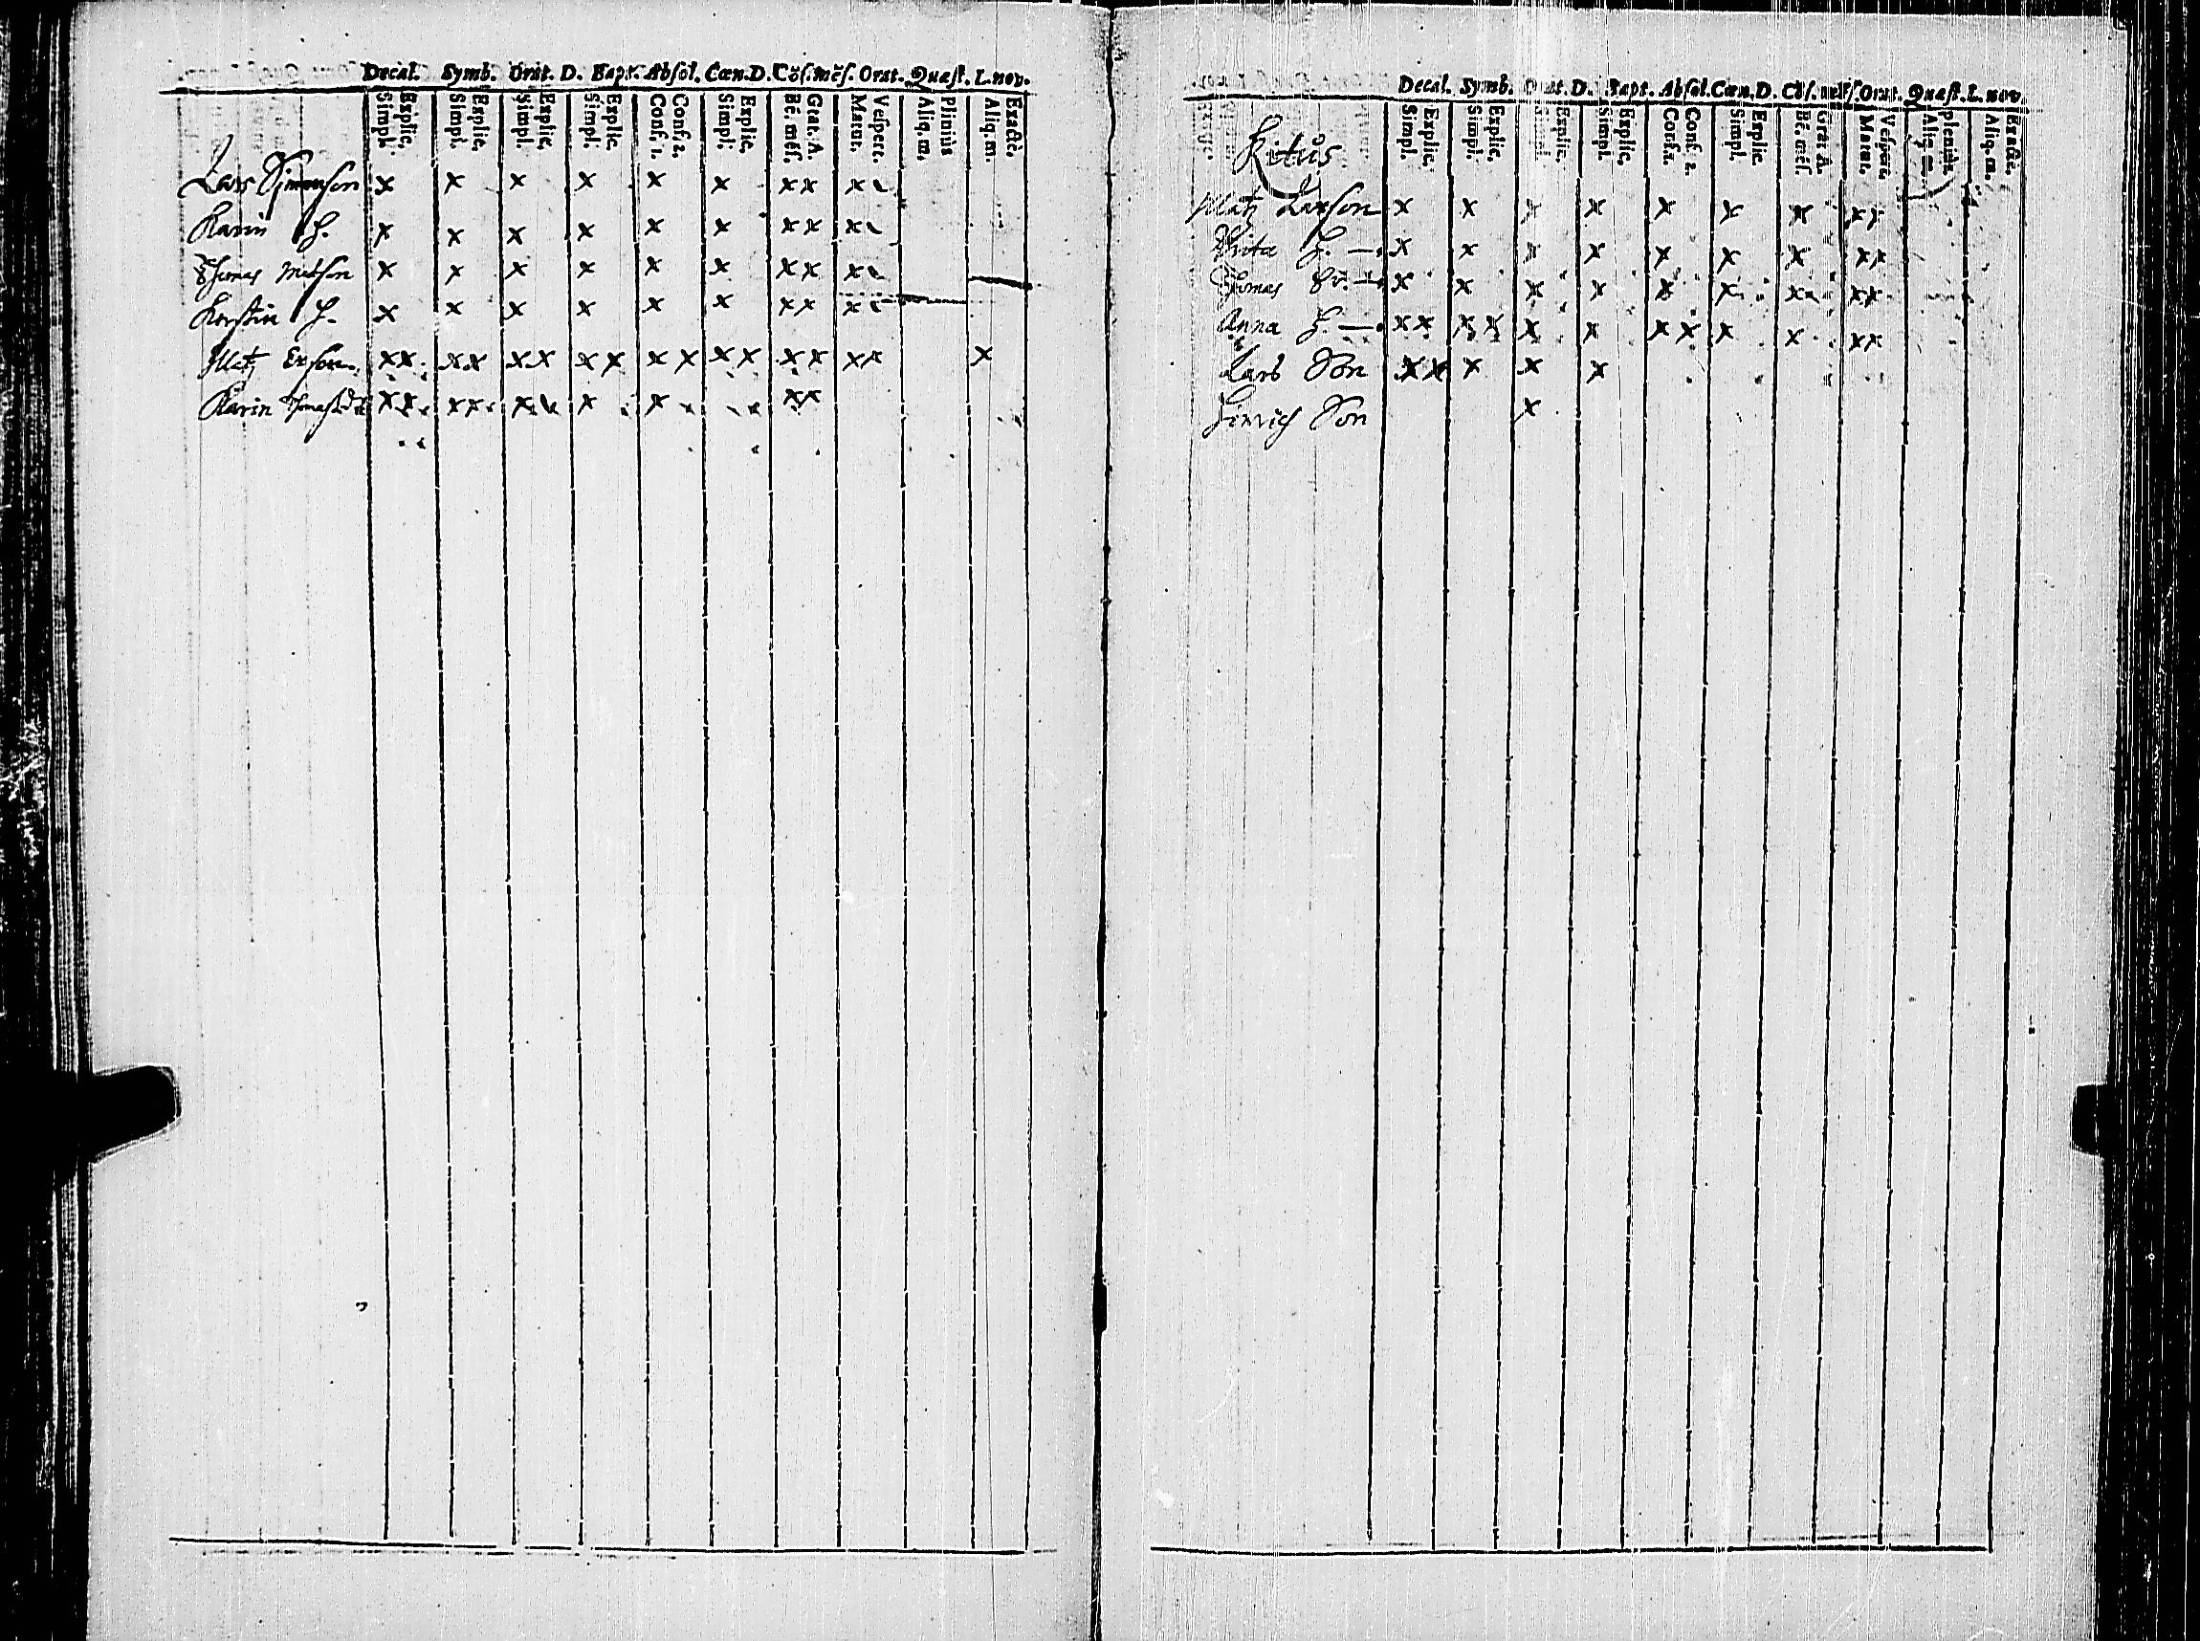 Decal. Symb. Orat. D. Bapt. Absol. Cœn. D. Cõf. mẽf. Orat. Quæst. L. nov.
Simpl. Explic. Simpl. Explic. Simpl. Explic. Simpl. Explic. Conf. 1. Conf. 2. Simpl. Explic. Bẽ. mẽf. Grat. A. Matut. Vespert. Aliq. m. Pliniùs Aliq. m. Exactè.
Lars Simonson x x x x x x x x x
Karin H. x x x x x x x x x
Thomas Matson x x x x x x x x x
Kerstin H. x x x x x x x x x
Matz Erson x x x x x x x x x x x x x x x x x
Karin Thomasd x x x x x x x x x x
Decal. Symb. Orat. D. Bapt. Absol. Cœn. D. Cõf. mẽf. Orat. Quæst. L. nov.
Simpl. Explic. Simpl. Explic. Simpl. Explic. Simpl. Explic. Conf. 1. Conf. 2. Simpl. Explic. Bẽ. mẽf. Grat. A. Matut. Vespert. Aliq. m. pleniùs Aliq. m. Exactè.
Matz Larson x x x x x x x x x
Brita H. x x x x x x x x x
Thomas Br. x x x x x x x x x
Anna H. x x x x x x x x x x x x
Lars Son x x x x x
Hinrich Son x